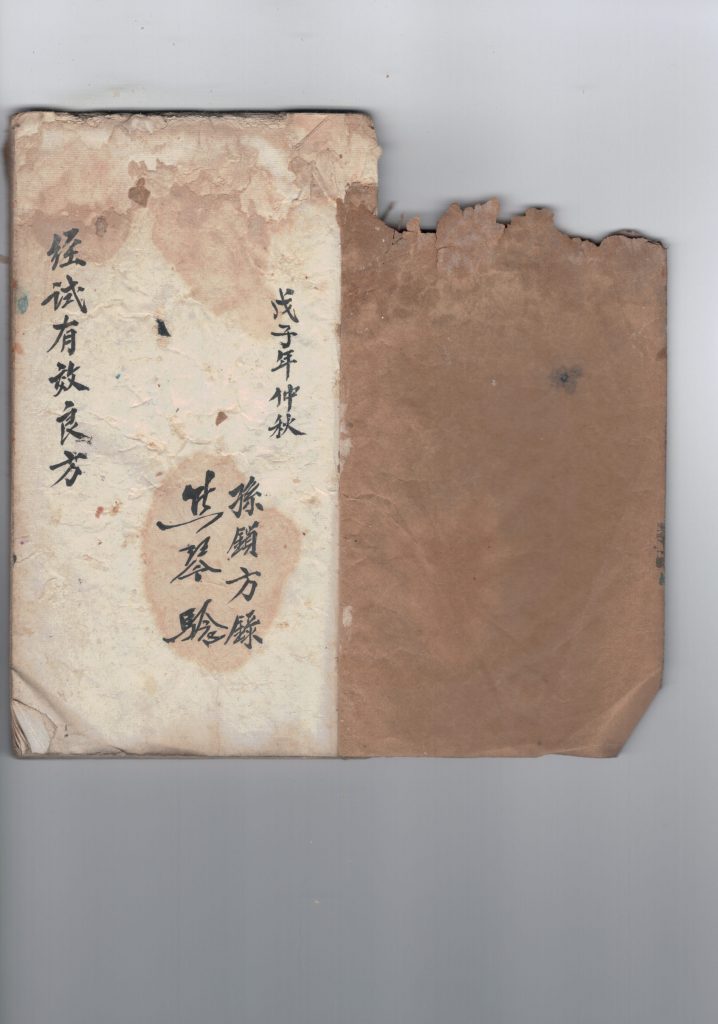 戊子年仲秋
孫鎖方錄
焦琴驗
经试有效良方